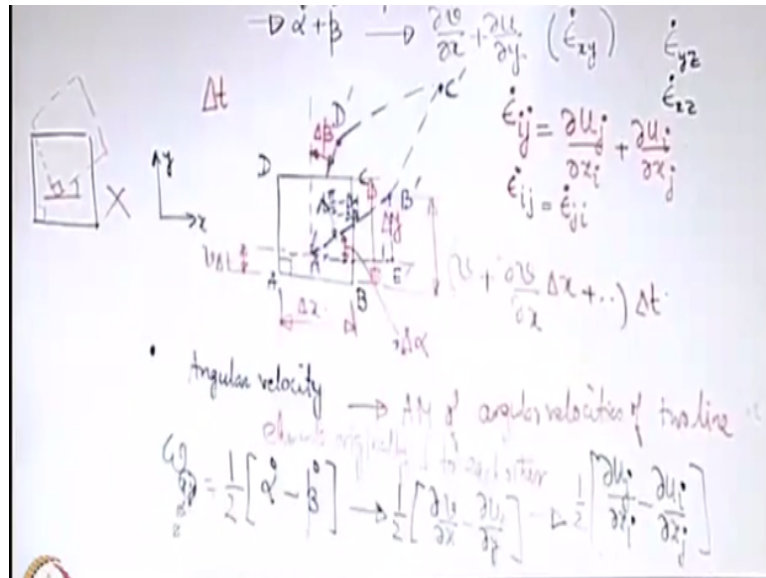 → α̇ + β̇ → ∂v/∂x + ∂u/∂y (ε̇xy) ε̇yz
ε̇xz
Δt
ε̇ij = ∂uj/∂xi + ∂ui/∂xj
ε̇ij = ε̇ji
y
x
D
D'
C
C'
Δβ
A
A'
B
B'
E'
Δy
vΔt
Δx
Δα
(v + ∂v/∂x Δx + ..) Δt
• Angular velocity → AM of angular velocities of two line
originally ⊥ to each other
= 1/2 [α̇ - β̇] → 1/2 [∂v/∂x - ∂u/∂y] → 1/2 [∂uj/∂xi - ∂ui/∂xj]